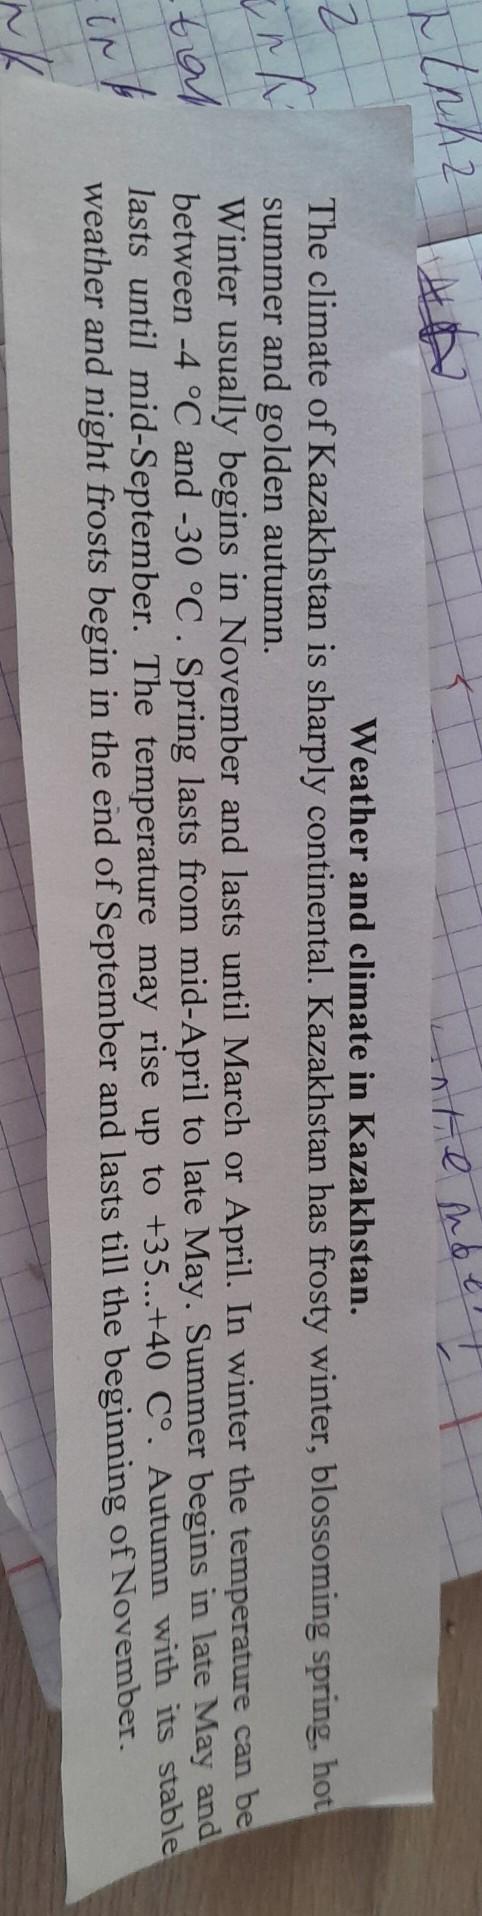 Weather and climate in Kazakhstan.
The climate of Kazakhstan is sharply continental. Kazakhstan has frosty winter, blossoming spring, hot
summer and golden autumn.
Winter usually begins in November and lasts until March or April. In winter the temperature can be
between -4 °C and -30 °C. Spring lasts from mid-April to late May. Summer begins in late May and
lasts until mid-September. The temperature may rise up to +35...+40 C°. Autumn with its stable
weather and night frosts begin in the end of September and lasts till the beginning of November.